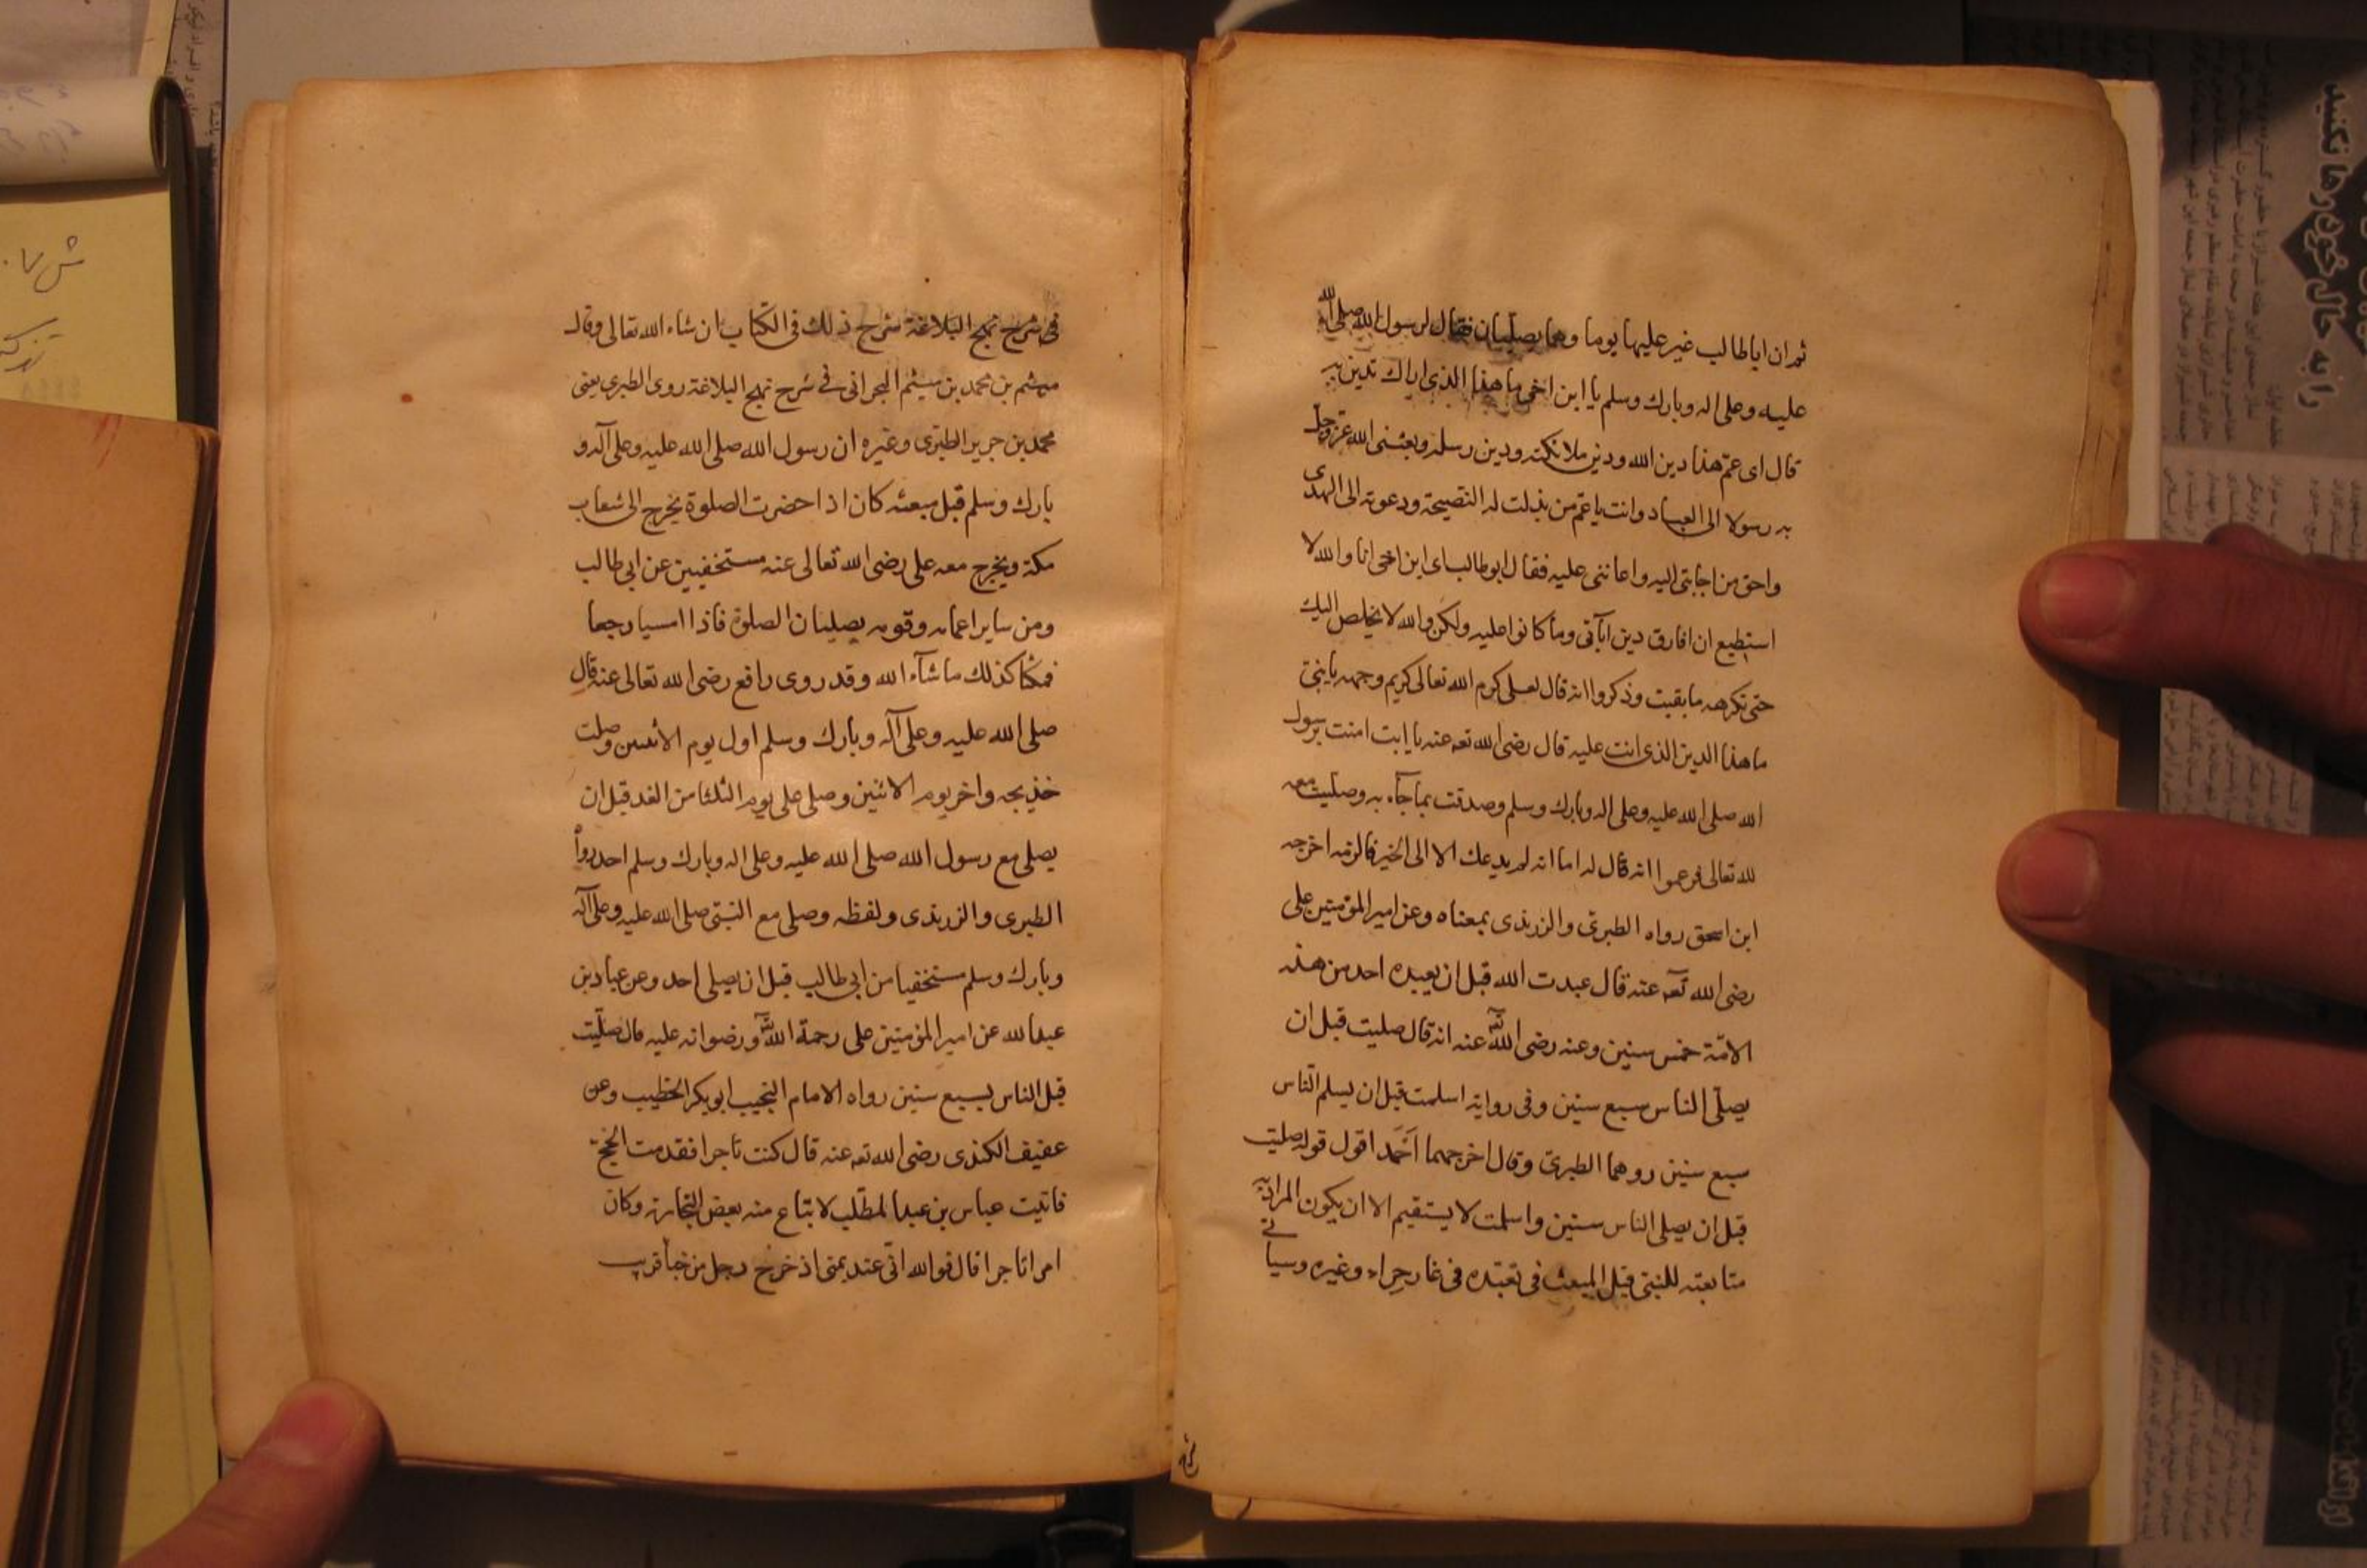 ثم ان ابا طالب غير عليها يوما وهما يصليان فقال لرسول الله صلى الله
عليه وعلى اله وبارك وسلم يا ابن اخى ما هذا الذى اراك تدين به
قال اى عم هذا دين الله ودين ملائكته ودين رسله وبعثنى الله عز وجل
به رسولا الى العباد وانت يا عم من بذلت له النصيحة ودعوته الى الهدى
واحق من اجابنى اليه واعاننى عليه فقال ابو طالب اى ابن اخى انا والله لا
استطيع ان افارق دين ابآئى وما كانوا عليه ولكن والله لا يخلص اليك
حتى تكرهه ما بقيت وذكروا انه قال لعلى كرم الله تعالى كريم وجهه يا بنى
ما هذا الدين الذى انت عليه قال رضى الله تعه عنه يا ابت امنت برسول
الله صلى الله عليه وعلى اله وبارك وسلم وصدقت بما جآء به وصليت معه
لله تعالى فزعموا انه قال له اما انه لم يدعك الا الى الخير فالزمه اخرجه
ابن اسحق رواه الطبرى والزرندى بمعناه وعن امير المؤمنين على
رضى الله تعه عنه قال عبدت الله قبل ان يعبده احد من هذه
الامّة خمس سنين وعنه رضى الله عنه انه قال صليت قبل ان
يصلّى الناس سبع سنين وفى رواية اسلمت قبل ان يسلم الناس
سبع سنين روهما الطبرى وقال اخرجهما اَحْمَد اقول قوله صليت
قبل ان يصلى الناس سنين واسلمت لا يستقيم الا ان يكون المراد به
متابعته للنبى قبل المبعث فى تعبّده فى غار حراء وغيره وسياتى
فى شرح نهج البلاغة شرح ذلك فى الكتاب ان شاء الله تعالى وقال
ميثم بن محمد بن ميثم البحرانى فى شرح نهج البلاغة روى الطبرى يعنى
محمد بن جرير الطبرى وغيره ان رسول الله صلى الله عليه وعلى آله و
بارك وسلم قبل مبعثه كان اذا حضرت الصلوة يخرج الى شعاب
مكة ويخرج معه على رضى الله تعالى عنه مستخفيين عن ابى طالب
ومن ساير اعمامه وقومه يصليان الصلوة فاذا امسيا رجعا
فمكثا كذلك ما شآء الله وقد روى رافع رضى الله تعالى عنه قال
صلى الله عليه وعلى آله وبارك وسلم اول يوم الاثنين وصلت
خذيجه واخر يوم الاثنين وصلى على يوم الثلثا من الغد قبل ان
يصلى مع رسول الله صلى الله عليه وعلى اله وبارك وسلم احد رواه
الطبرى والزرندى ولفظه وصلى مع النبىّ صلى الله عليه وعلى آله
وبارك وسلم مستخفيا من ابى طالب قبل ان يصلى احد وعن عباد بن
عبد الله عن امير المؤمنين على رحمة الله ورضوانه عليه قال صلّيت
قبل الناس بسبع سنين رواه الامام النجيب ابو بكر الخطيب وعن
عفيف الكندى رضى الله تعه عنه قال كنت تاجرا فقدمت الحج
فاتيت عباس بن عبد المطّلب لابتاع منه بعض التجارة وكان
امرا تاجرا قال فو الله انى عنده بمنى اذ خرج رجل من خبأ قريب